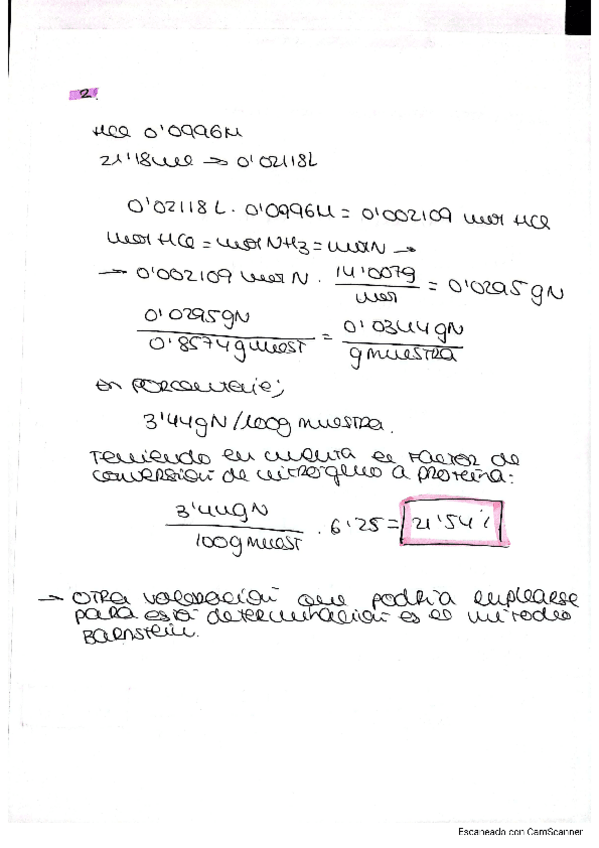 2.
HCl 0'0996M
21'18ml → 0'02118L
0'02118 L · 0'0996M = 0'002109 mol HCl
mol HCl = mol NH3 = mol N →
→ 0'002109 mol N · 14'0079 / mol = 0'0295 gN
0'0295 gN / 0'8574 g muest = 0'0344 gN / g muestra
en porcentaje;
3'44 gN / 100g muestra.
Teniendo en cuenta el factor de
conversión de nitrógeno a proteína:
3'44gN / 100g muest · 6'25 = 21'54 %
→ Otra valoración que podría emplearse
para esta determinación es el método
Barnstein.
Escaneado con CamScanner